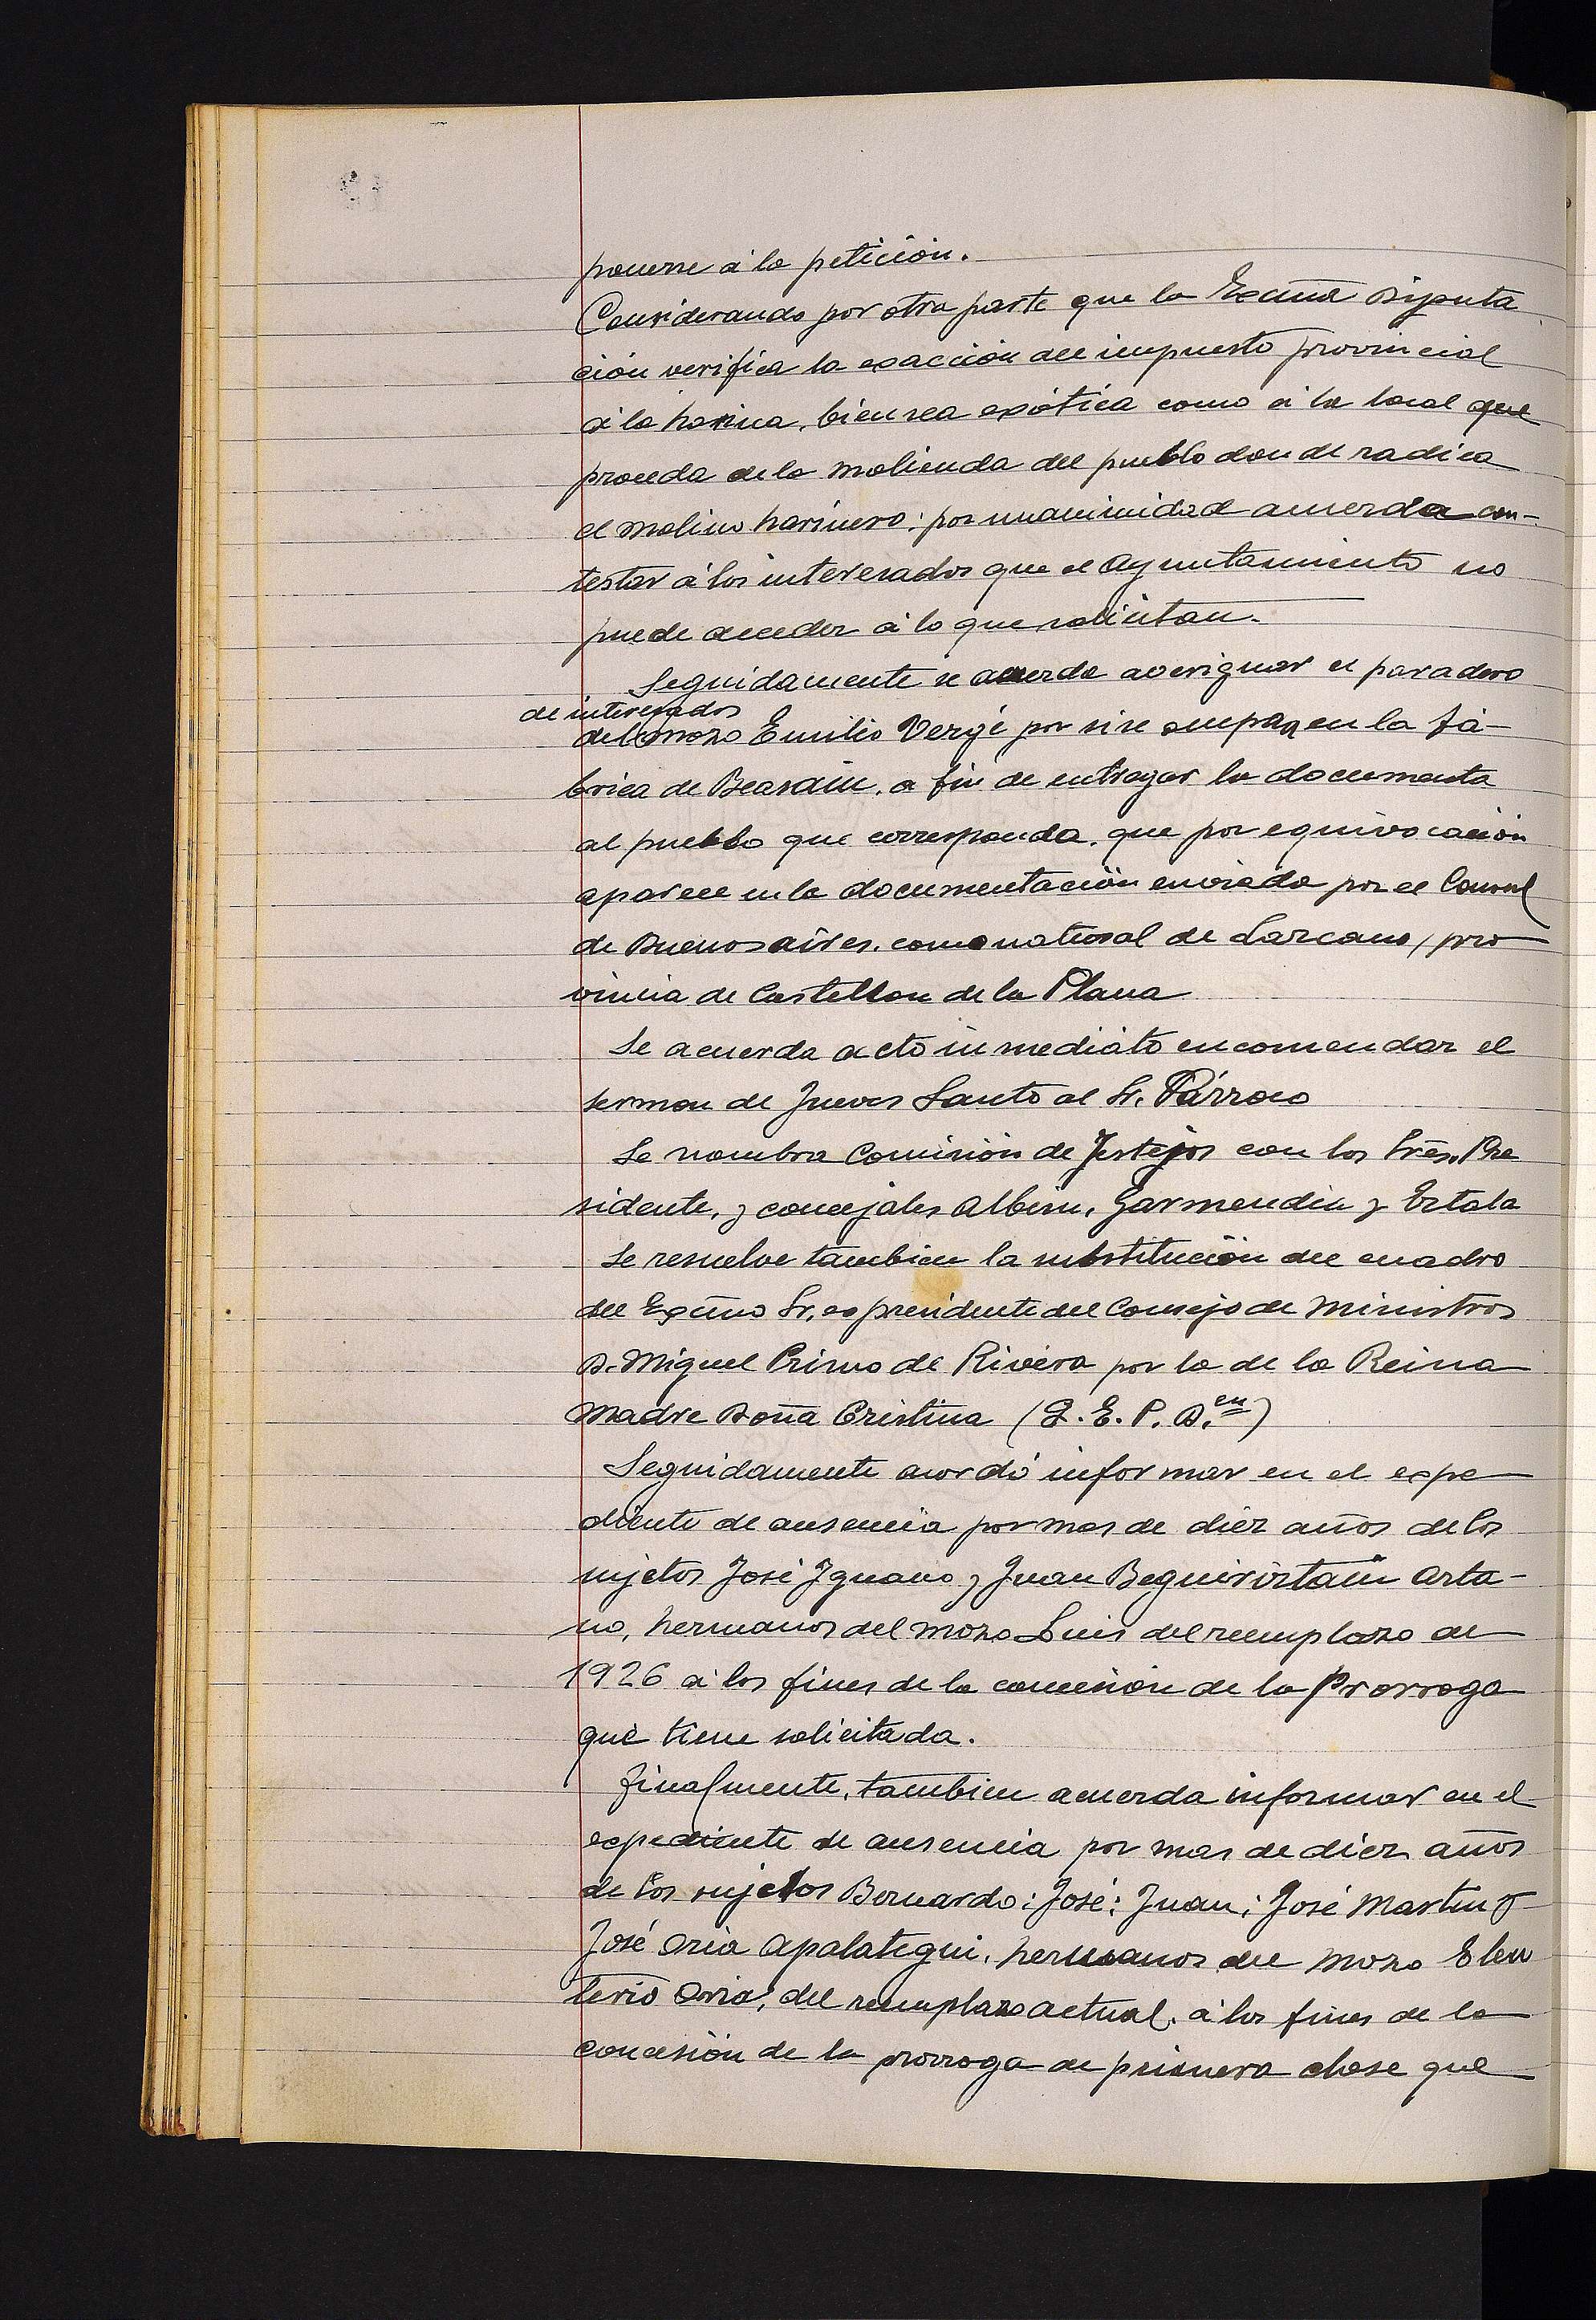 ponerse á la petición.
Considerando por otra parte que la Excma Diputa
ción verifica la exacción del impuesto provincial
á la harina, bien sea exótica como á la local que
proceda de la molienda del pueblo donde radica
el molino harinero; por unanimidad acuerda con-
testar á los interesados que el Ayuntamiento no
puede acceder á lo que solicitan.
Seguidamente se acuerda averiguar el paradero
de interesados
del mozo Emilio Vergé por si se ocupan en la fá-
brica de Beasain, a fin de entregar la documenta
al pueblo que corresponda, que por equivocación
aparece en la documentación enviada por el Consul
de Buenos aires, como natural de Lazcano, pro
vincia de Castellon de la Plana
Se acuerda acto inmediato encomendar el
sermon de Jueves Santo al Sr. Párroco
Se nombra Comisión de Festejos con los Sres. Pre
sidente, y concejales Albisu, Garmendia y Ertala
Se resuelve tambien la substitución del cuadro
del Excmo Sr, expresidente del Consejo de Ministros
D. Miguel Primo de Rivera por la de la Reina
Madre Doña Cristina (Q. E. P. D. en)
Seguidamente acordó informar en el expe
diente de ausencia por mas de diez años de los
sujetos José Ignacio y Juan Beguiristain Arta-
no, hermanos del mozo Luis del reemplazo de
1926 á los fines de la concesión de la Prorroga
que tiene solicitada.
Finalmente, tambien acuerda informar en el
expediente de ausencia por mas de diez años
de los sujetos Bernardo; José; Juan; José Martin y
José Oria Apalategui, hermanos del mozo Eleu
terio Oria, del reemplazo actual, á los fines de la
concesión de la prorroga de primera clase que